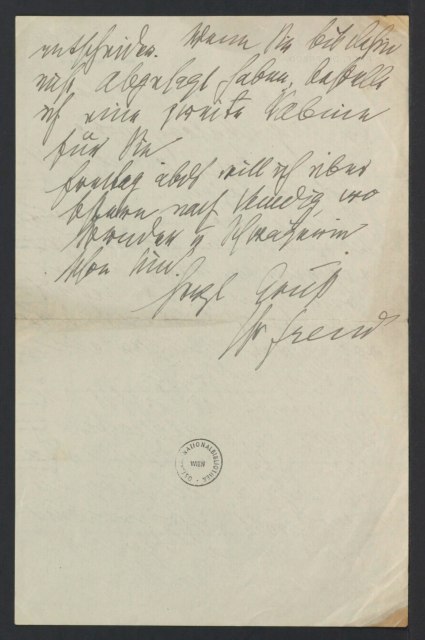 entscheiden. Wenn Sie bis dahin
nicht abgesagt haben, bestelle
ich eine zweite Cabine
für Sie
Freitag abds will ich über
Ostern nach Venedig, wo
Bruder u Schwägerin
schon sind
Herzl Gruß
Ihr Freud
NATIONALBIBLIOTHEK
WIEN